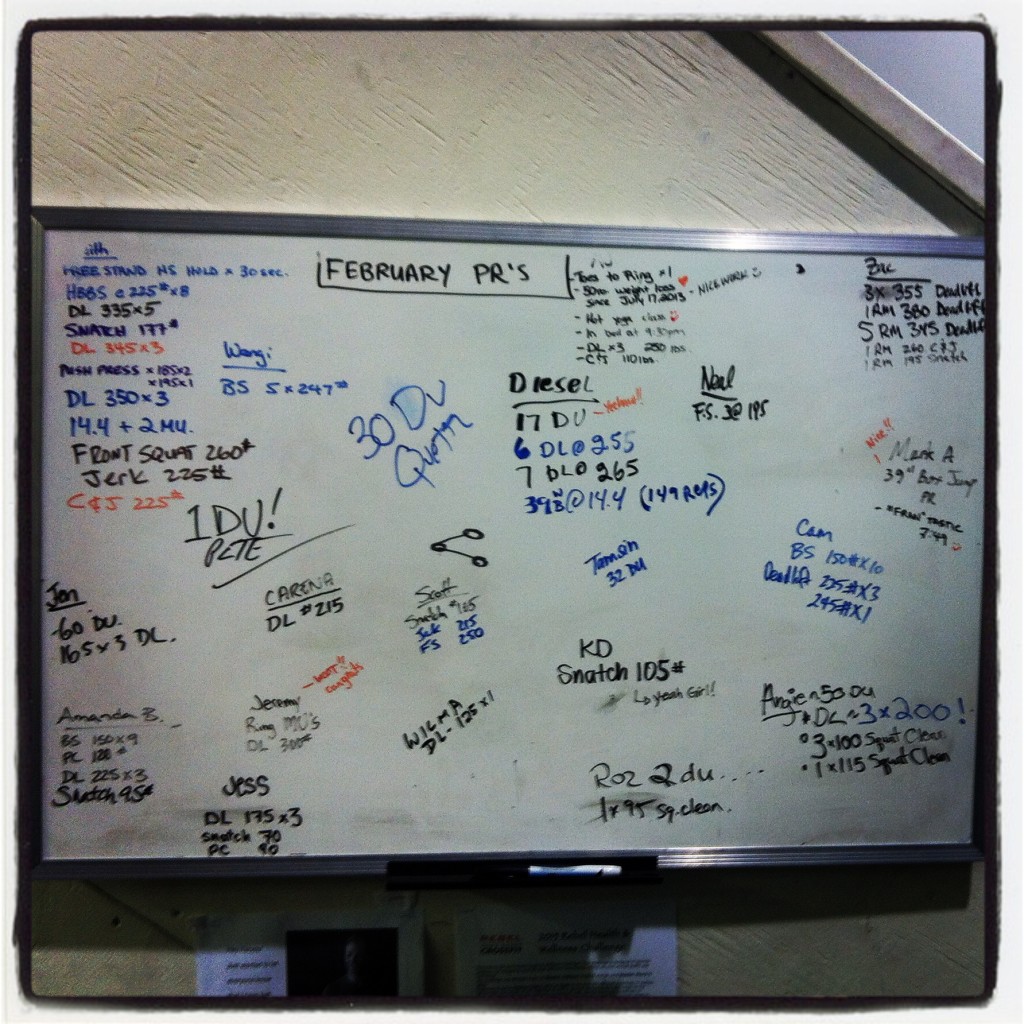 FEBRUARY PR'S
FREE STAND HS HOLD x 30 sec.
HBBS @ 225# x 8
DL 335x5
SNATCH 177#
DL 345x3
PUSH PRESS x 185x2
x 195x1
DL 350x3
14.4 + 2 MU.
FRONT SQUAT 260#
Jerk 225#
C&J 225#
BS 5x247#
1 DU!
PETE
30 DU
Toes to Ring x1
- 50 weight loss
since July 17, 2013
- NICE WORK
- Hot yoga class
- In bed at 9:30pm
- DL x3 250 lbs
- C&J 110 lbs.
Zac
3x 355 Deadlift
1 RM 380 Deadlift
5 RM 345 Deadlift
1 RM 260 C&J
1 RM 195 Snatch
Diesel
17 DU
6 DL @ 255
7 DL @ 265
@ 14.4 (149 REPS)
Neal
F.S. 3@ 195
Nice!!
Mark A
39" Box Jump
PR
- "FRAN"TASTIC
7:49
Cam
BS 150#x10
Deadlift 225#x3
245#x1
Tamsin
32 DU
Jen
60 DU.
165x3 DL.
CARENA
DL #215
Scott
Snatch #165
Jerk 215
FS 250
KD
Snatch 105#
↳ yeah Girl!
Angie ~ 50 DU
DL ~ 3x200!
3x100 Squat Clean
1x115 Squat Clean
Amanda B.
BS 150x9
PC 120#
DL 225x3
Snatch 95#
congrats
Jeremy
Ring MU's
DL 300#
WILMA
DL - 125x1
Roz 2 du....
1x95 sq. clean.
Jess
DL 175x3
Snatch 70
PC 90